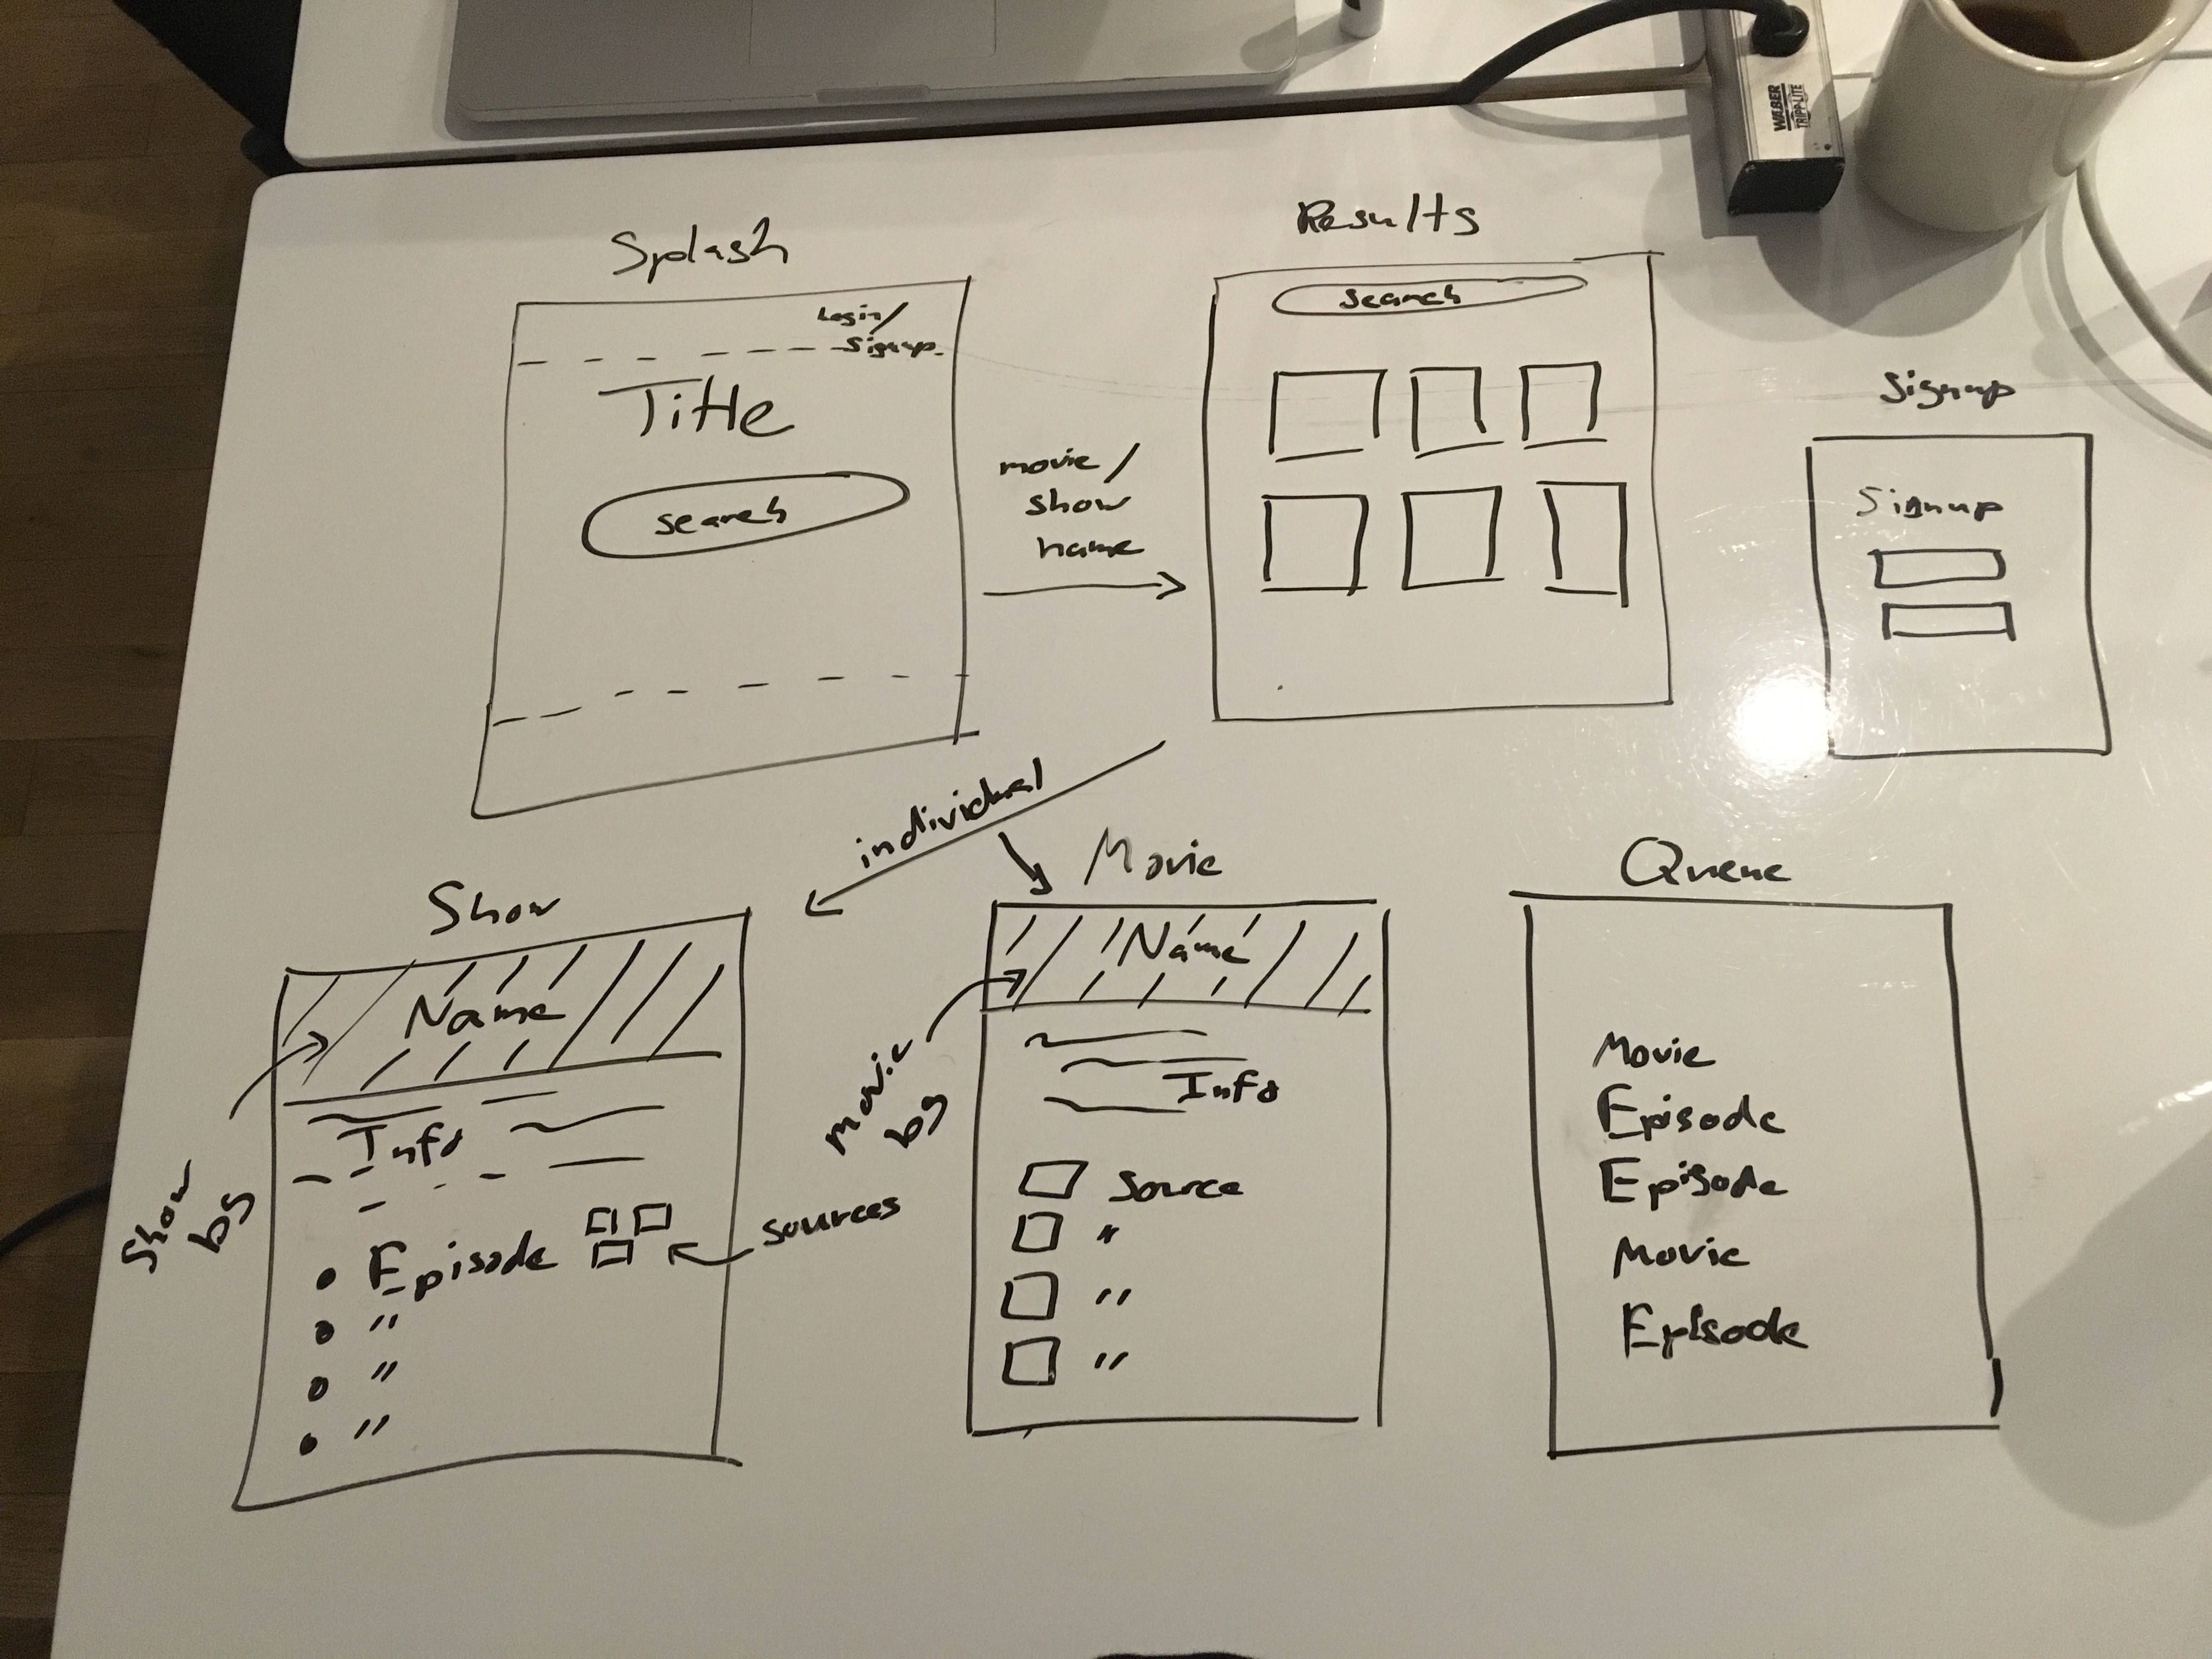 WALBER
TRIPP·LITE
Splash
Login/
Signup
Title
search
movie/
show
name
Results
search
Signup
Signup
individual
Show
Name
Show
bg
Info
Episode
"
"
"
sources
Movie
Name
movie
bg
Info
Source
"
"
"
Queue
Movie
Episode
Episode
Movie
Episode